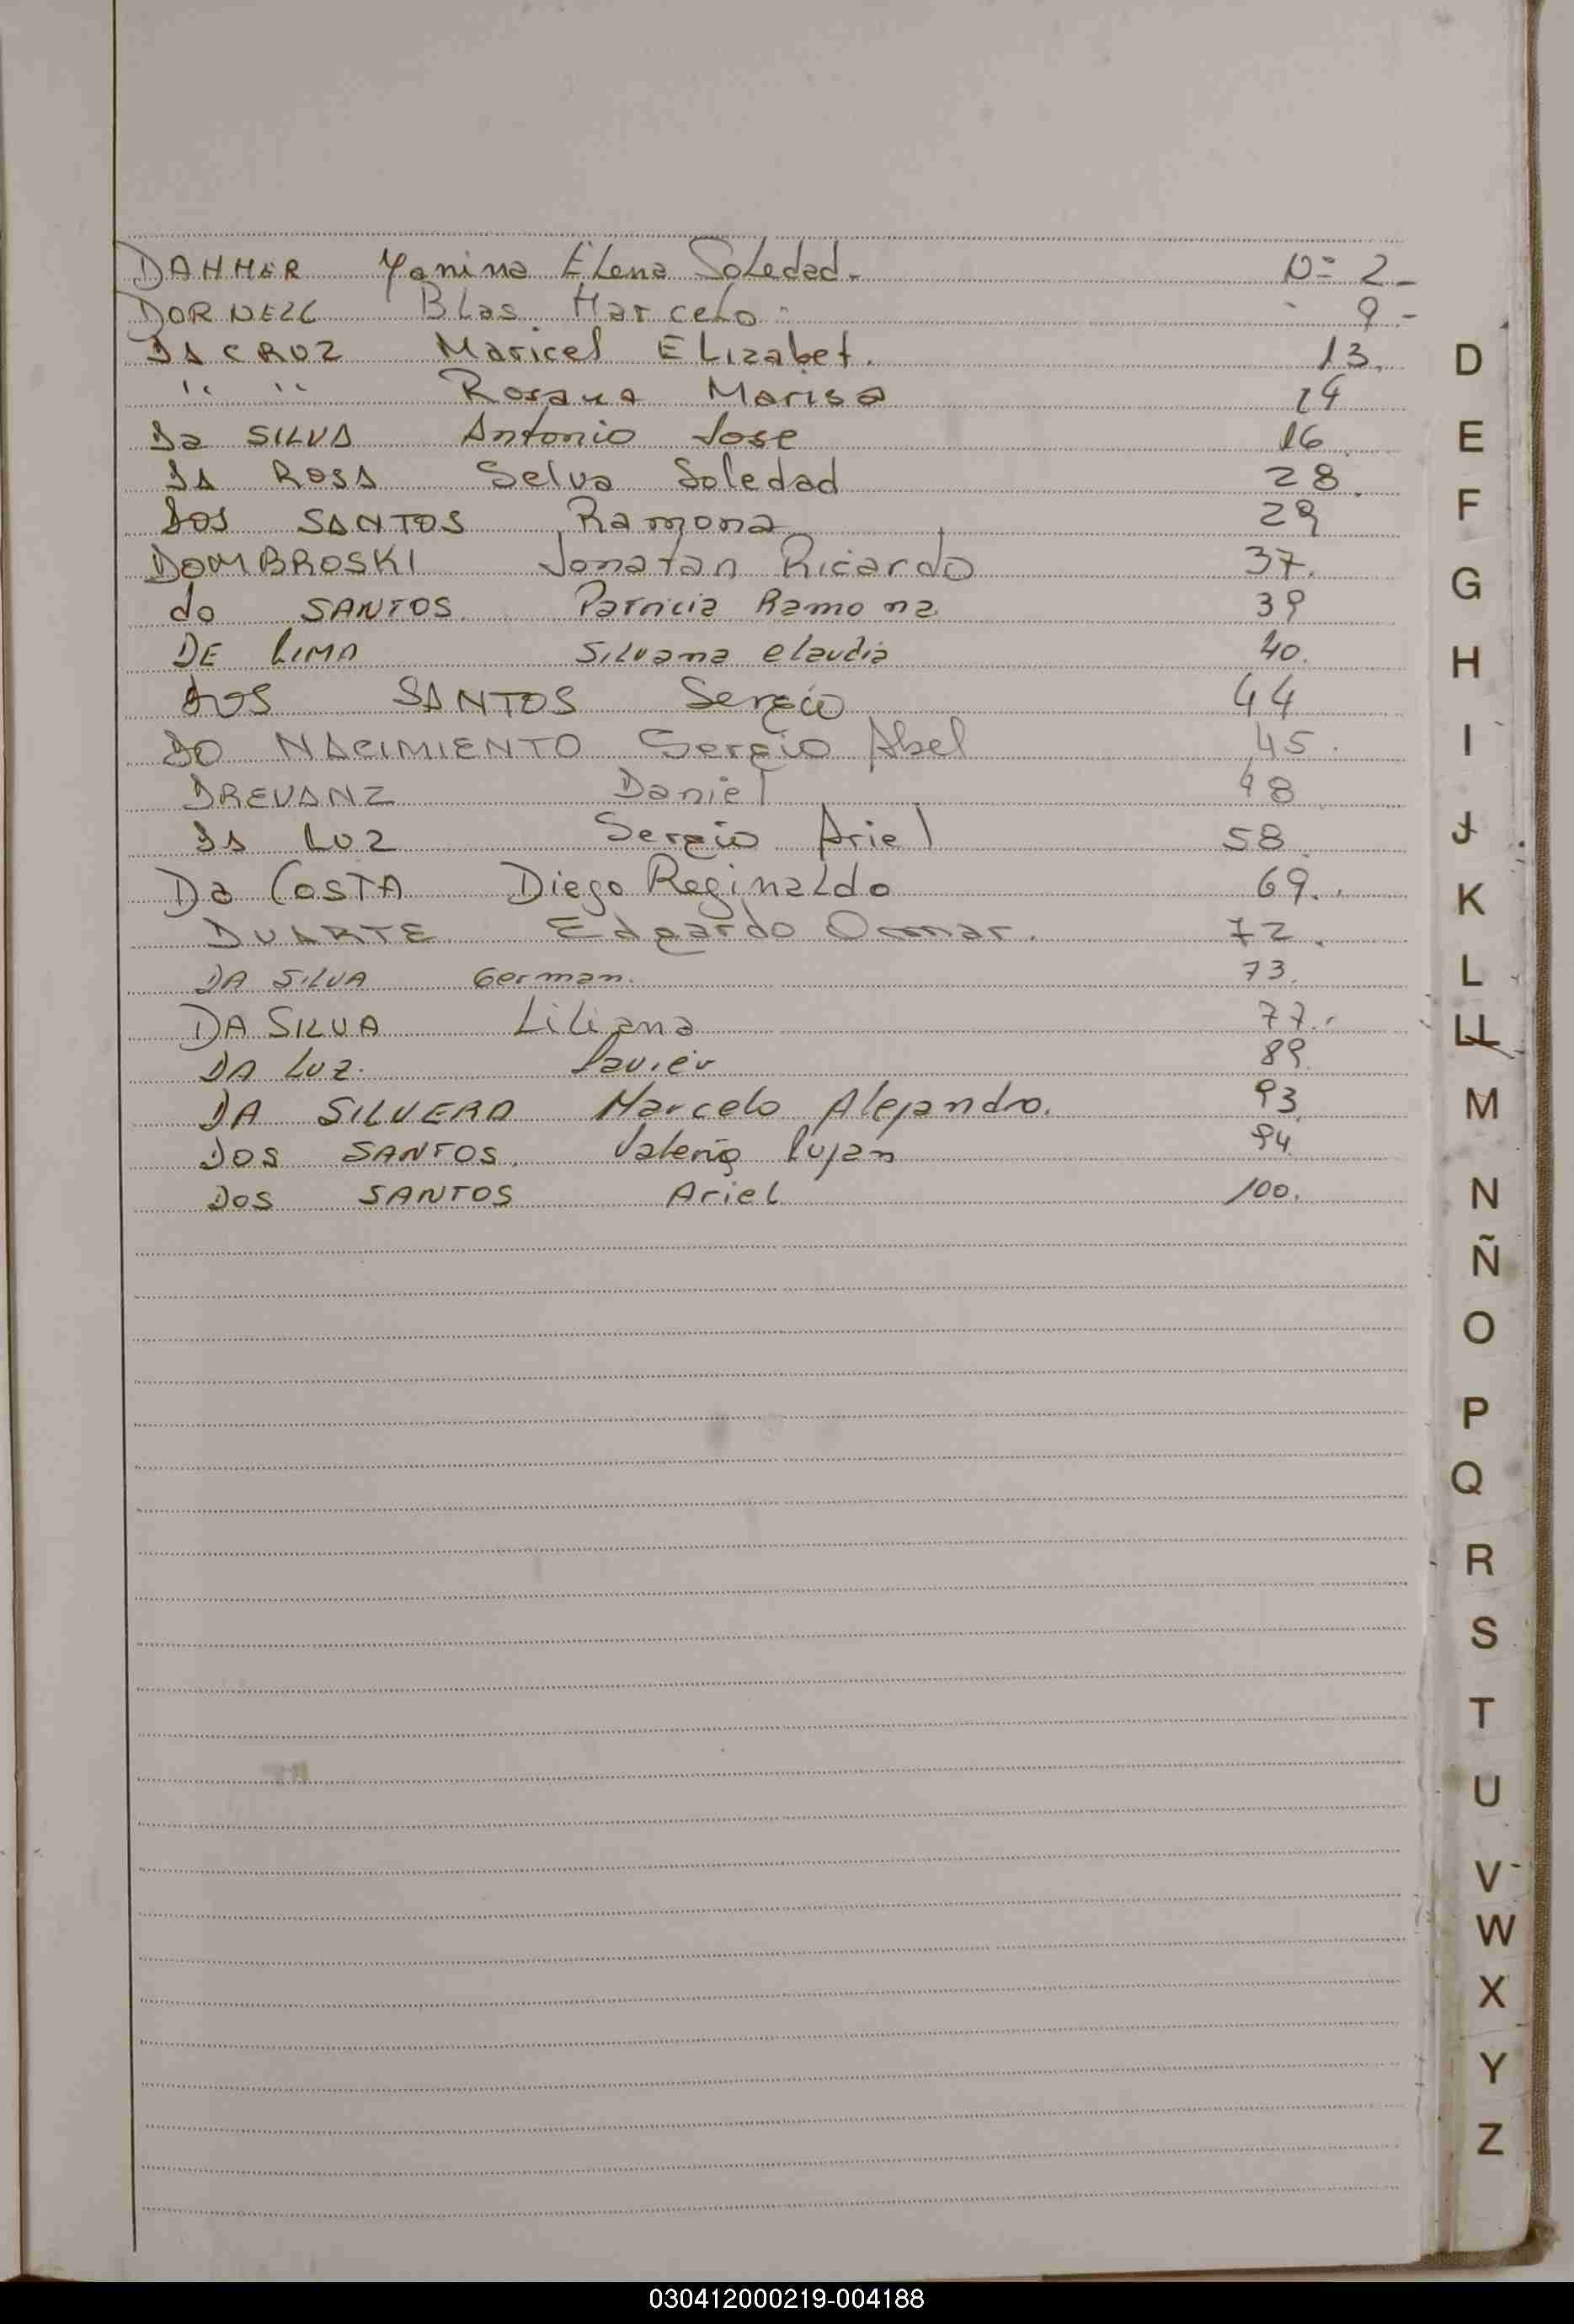 DAHMER Yanina Elena Soledad- Nº 2-
DORNELL Blas Marcelo - " 9.-
DA CRUZ Maricel Elizabet. 13.
" " Rosana Marisa 14
Da SILVA Antonio Jose 16
DA ROSA Selva Soledad 28.
Dos SANTOS Ramona 29
DOMBROSKI Jonatan Ricardo 37.
do SANTOS. Patricia Ramona 39
DE LIMA Silvana Claudia 40.
DOS SANTOS Sergio 44
DO NACIMIENTO Sergio Abel 45.
DREVANZ Daniel 48
DA LUZ Sergio Ariel 58.
Da COSTA Diego Reginaldo 69..
DUARTE Edgardo Ommar. 72.
DA SILVA German. 73.
DA SILVA Liliana 77.-
DA LUZ. Javier 89
DA SILVERA Marcelo Alejandro. 93.
DOS SANTOS. Valeria Lujan 94.
DOS SANTOS Ariel 100.
D
E
F
G
H
I
J
K
L
LL
M
N
Ñ
O
P
Q
R
S
T
U
V
W
X
Y
Z
030412000219-004188